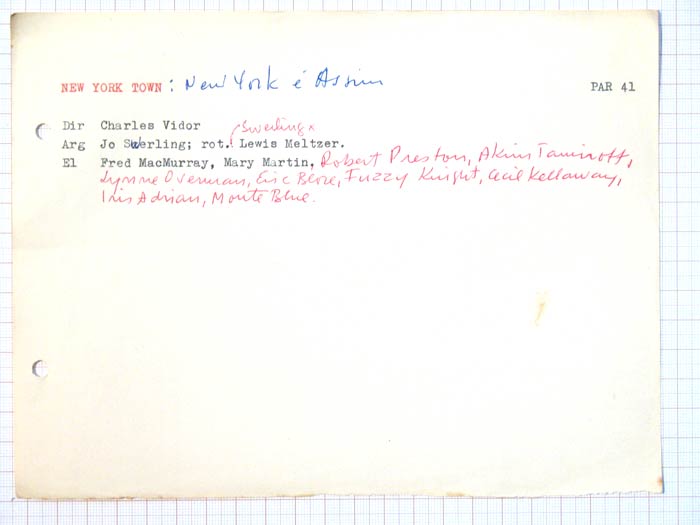 NEW YORK TOWN : New York é Assim PAR 41
Dir Charles Vidor
Swerling x
Arg Jo Swerling; rot. Lewis Meltzer.
El Fred MacMurray, Mary Martin, Robert Preston, Akim Tamiroff,
Lynne Overman, Eric Blore, Fuzzy Knight, Cecil Kellaway,
Iris Adrian, Monte Blue.